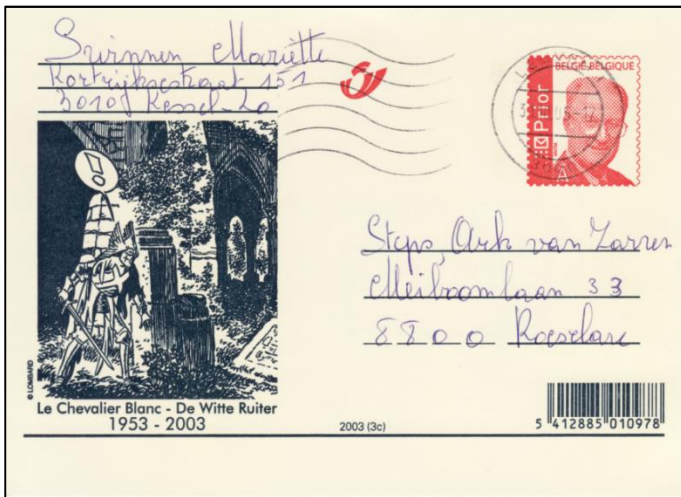 Swinnen Mariette
Kortrijksestraat 151
3010 Kessel-Lo
BELGIË BELGIQUE
Prior
A
!
Steps, Ark van Zarren
Meiboomlaan 33
8800 Roeselare
© LOMBARD
Le Chevalier Blanc - De Witte Ruiter
1953 - 2003
2003 (3c)
5 412885 010978